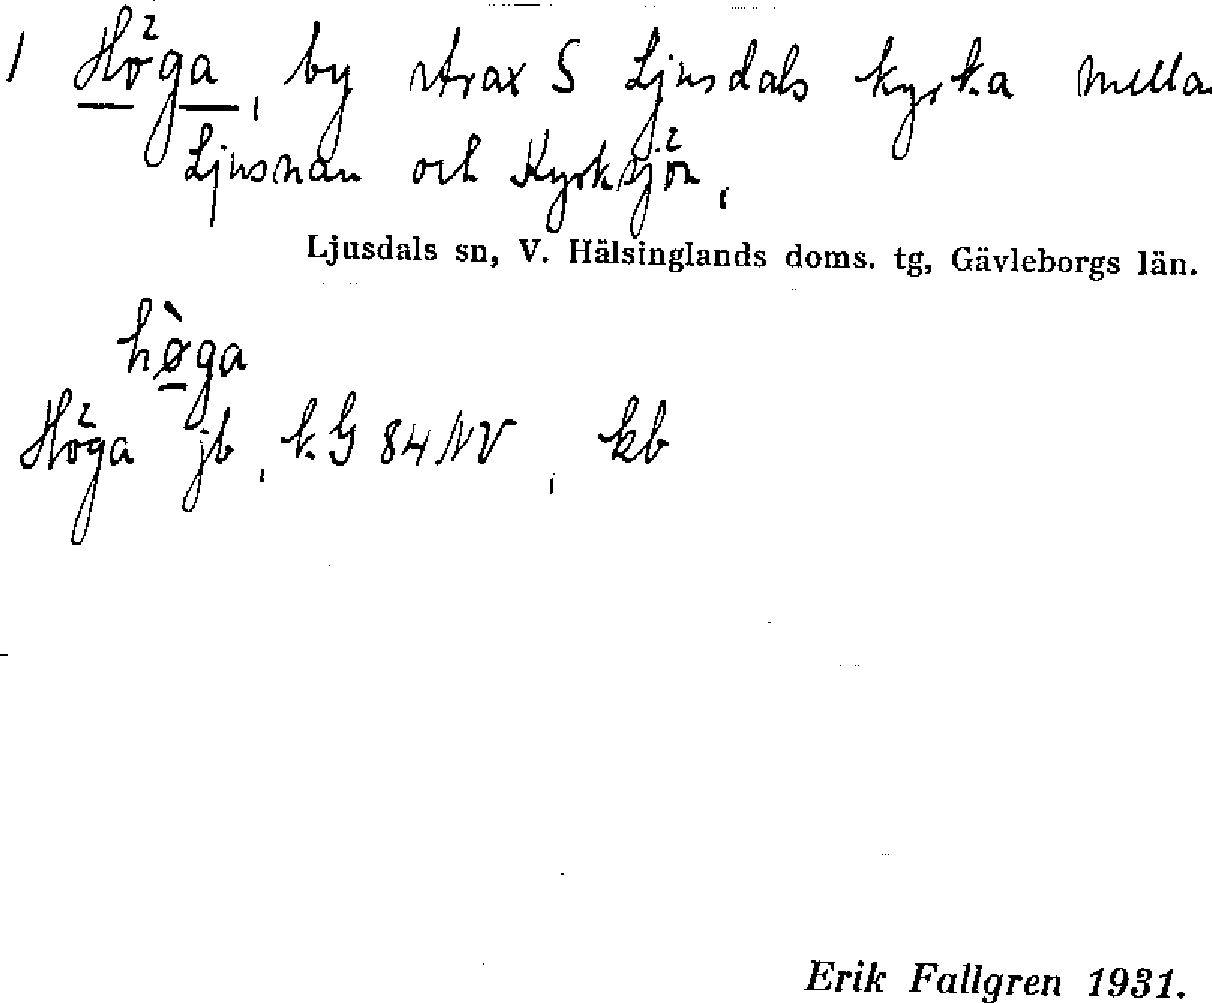 1 Höga, by strax S Ljusdals kyrka mella
Ljusnan och Kyrksjön,
Ljusdals sn, V. Hälsinglands doms. tg, Gävleborgs län.
hø̀ga
Höga jb, k. G 84 NV, kb
Erik Fallgren 1931.